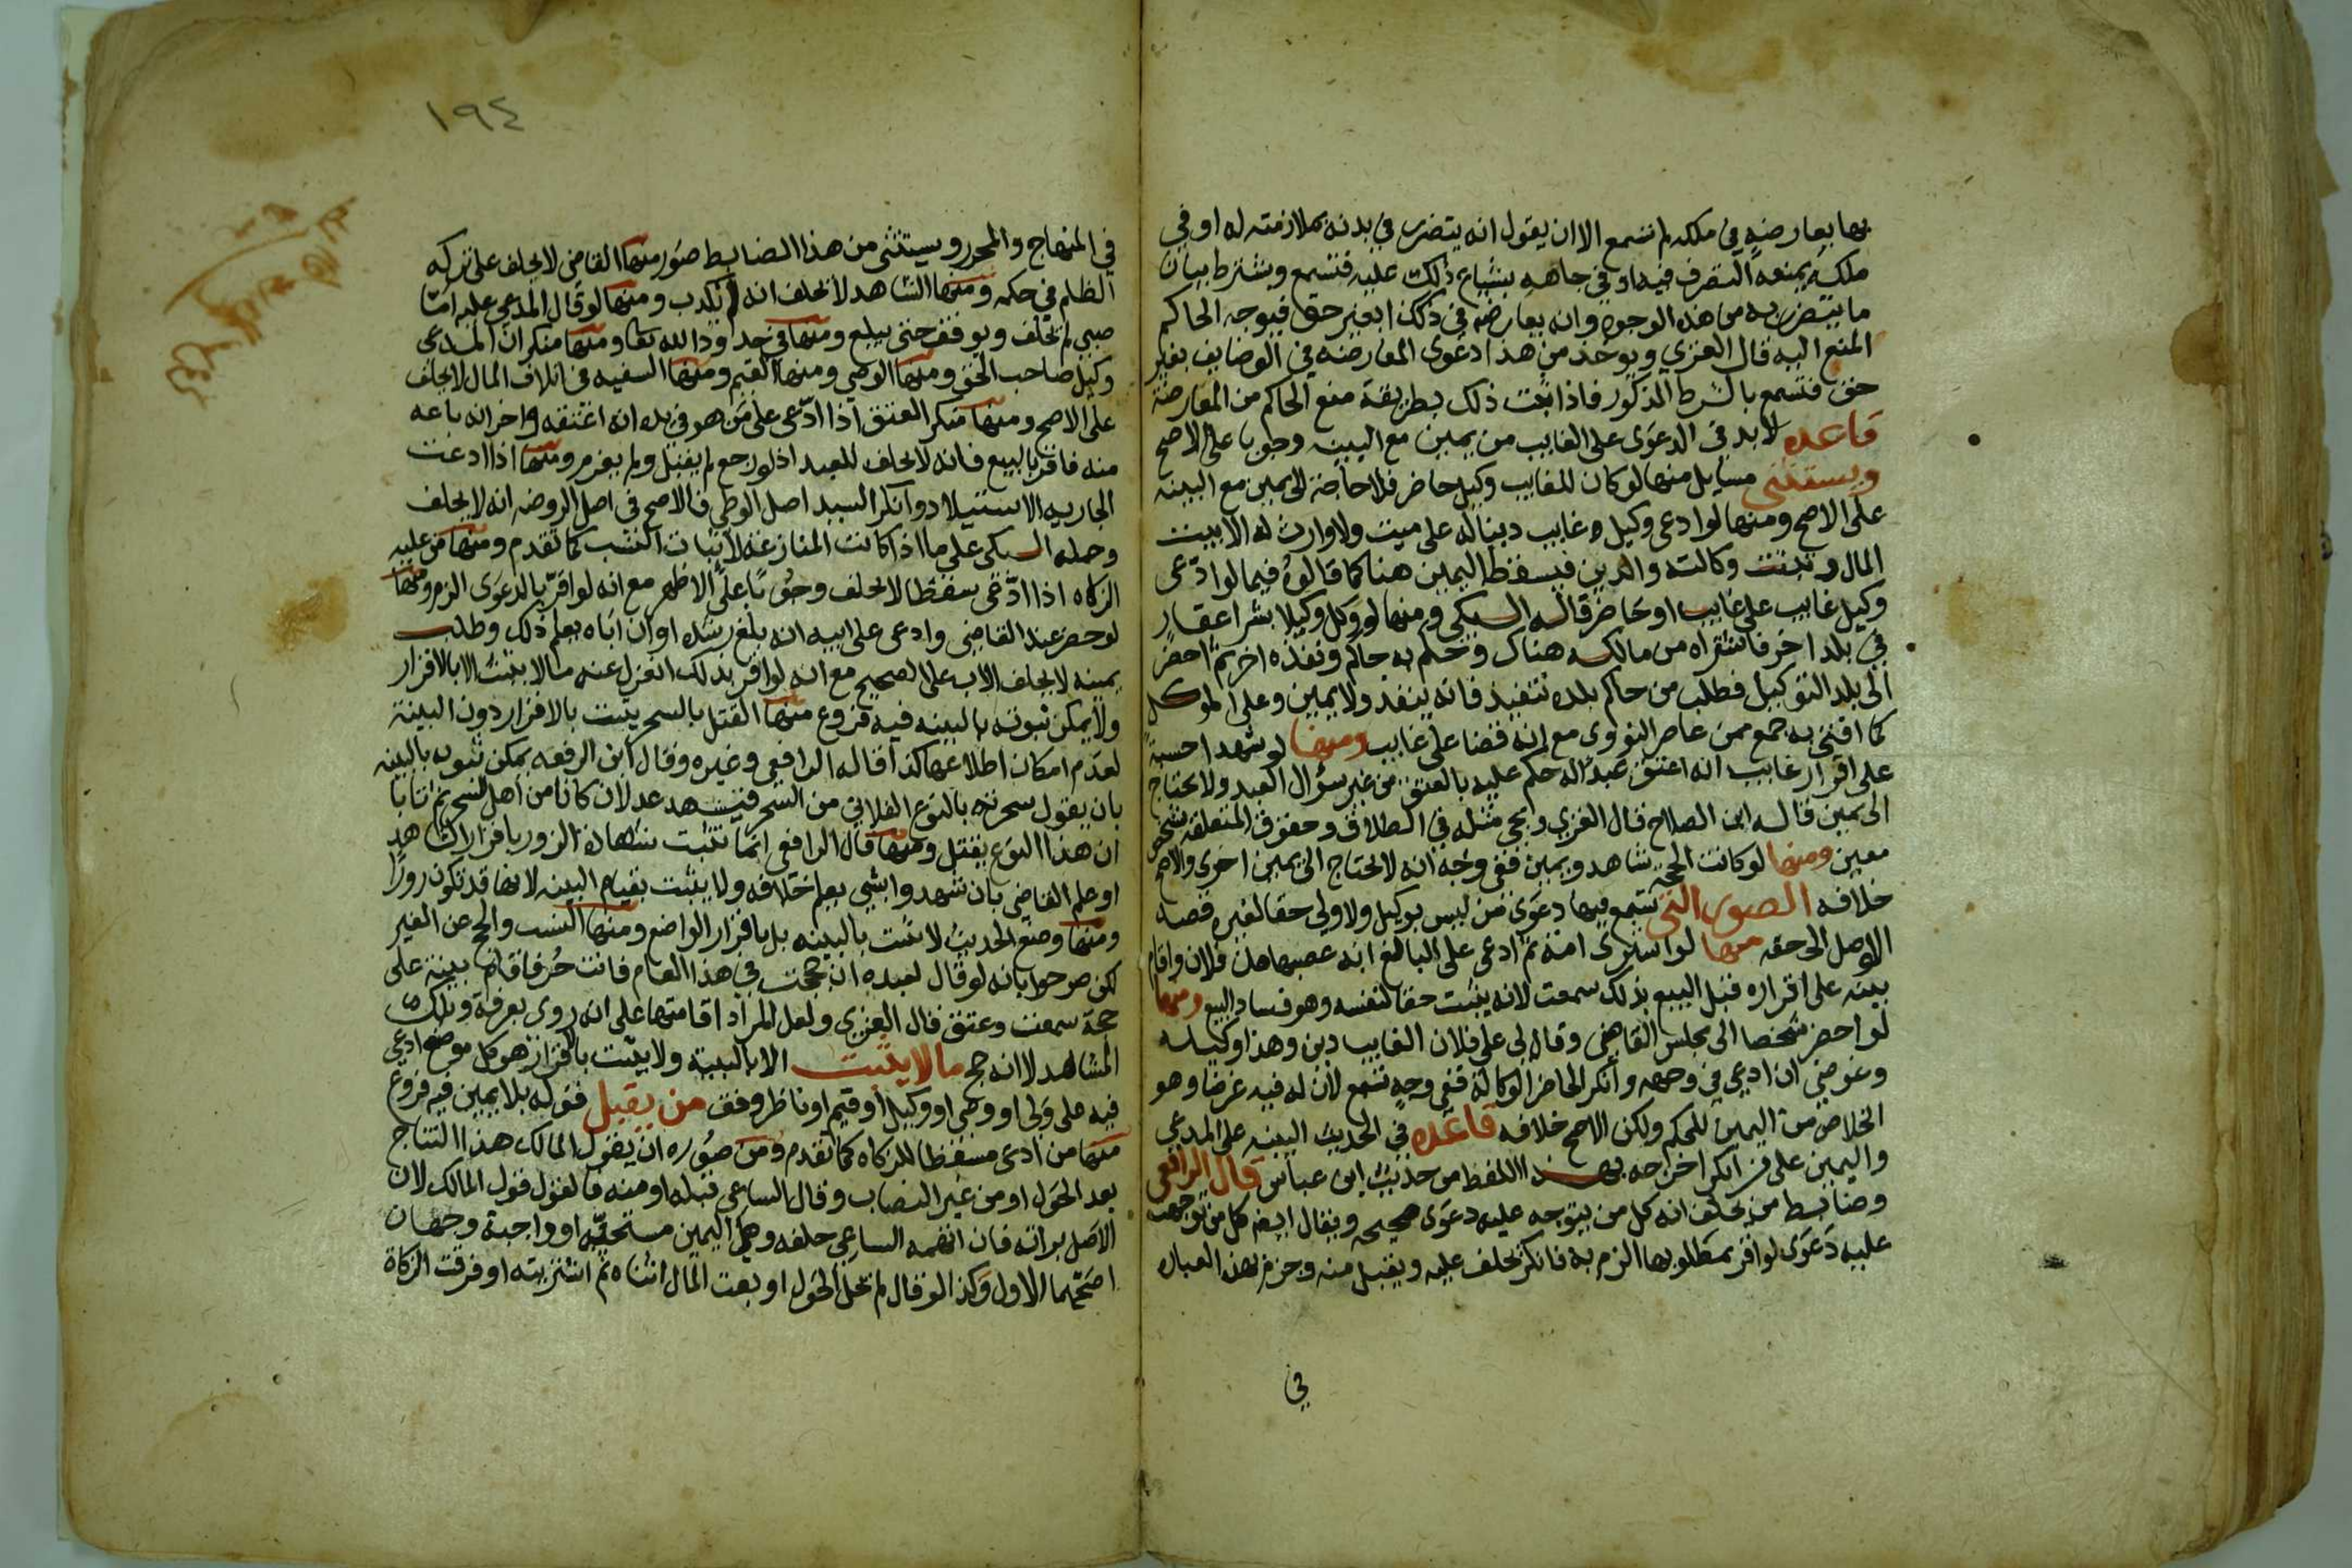 بها بعارضه في ملكه لم تسمع الا ان يقول انه يتضرر في بدنه بملازمته له او في
ملكه بمنعه التصرف فيه او في جاهه بشياع ذلك عليه فتسمع ويشترط بيان
ما يتضرر به من هذه الوجوه وانه يعارضه في ذلك بغير حق فيوجه الحاكم
المنع اليه قال الغزي ويوخذ من هذا دعوى المعارضه في الوضايف بغير
حق فتسمع بالشرط المذكور فاذا ثبت ذلك بطريقة منع الحاكم من المعارضة
قاعده لا بد في الدعوى على الغايب من يمين مع البينه وجوبا على الاصح
ويستثنى مسايل منها لو كان للغايب وكيل حاضر فلا حاجة الى يمين مع البينه
على الاصح ومنها لو ادعى وكيل غايب دينا له على ميت ولا وارث له الا بيت
المال وتثبت وكالته والدين فيسقط اليمين هنا كما قالوه فيما لو ادعى
وكيل غايب على غايب او حاضر قاله السبكي ومنها لو وكل وكيلا بشرا عقار
في بلد اخر فاشتراه من مالكه هناك وحكم به حاكم ونفذه اخر ثم احضر
الى بلد التوكيل فطلب من حاكم بلده تنفيذ فانه ينفذ ولا يمين وعلى الموكل
كما افتى به جمع ممن عاصر النووي مع انه قضا على غايب ومنها لو شهدا حسبة
على اقرار غايب انه اعتق عبدا له حكم عليه بالعتق من غير سؤال العبد ولا يحتاج
الى يمين قاله ابن الصلاح قال الغزي ويجي مثله في الطلاق وحقوق المتعلقه بشخص
معين ومنها لو كانت الحجه شاهد ويمين ففي وجه انه لا يحتاج الى يمين اخرى والاصح
خلافه الصور التي تسمع فيها دعوى من ليس بوكيل ولا ولي حقا لغيره قصد
الاوصل الى حقه منها لو اشترى امة ثم ادعى على البائع انه غصبها من فلان واقام
بينه على اقراره قبل البيع بذلك سمعت لانه يثبت حقا لنفسه وهو فساد البيع ومنها
لو احضر شخصا الى مجلس القاضي وقال لي على فلان الغايب دين وهذا وكيله
وغرضي ان ادعي في وجهه وانكر الحاضر الوكالة ففي وجه تسمع لان له فيه غرضا وهو
الخلاص من اليمين للحكم ولكن الاصح خلافه قاعده في الحديث البينه على المدعي
واليمين على من انكر اخرجه بهذا اللفظ من حديث ابن عباس قال الرافعي
وضابط من يحلف انه كل من يتوجه عليه دعوى صحيحه ويقال ايضا كل من توجهت
عليه دعوى لو اقر بمطلوبها الزم به فانكر يحلف عليه ويقبل منه وجزم بهذه العباره
في
١٩٤
في المنهاج والمحرر ويستثنى من هذا الضابط صور منها القاضي لا يحلف على تركه
الظلم في حكمه ومنها الشاهد لا يحلف انه لم يكذب ومنها لو قال المدعى عليه انا
صبي لم يحلف ويوقف حتى يبلغ ومنها في حدود الله تعا ومنها منكر ان المدعي
وكيل صاحب الحق ومنها الوصي ومنها القيم ومنها السفيه في اتلاف المال لا يحلف
على الاصح ومنها منكر العتق اذا ادعى على من هو في يده انه اعتقه واخر انه باعه
منه فاقر بالبيع فانه لا يحلف للعبد اذ لو رجع لم يقبل ولم يغرم ومنها اذا ادعت
الجاريه الاستيلاد وانكر السيد اصل الوطي فالاصح في اصل الروضه انه لا يحلف
وحمله السبكي على ما اذا كانت المنازعة لاثبات النسب كما تقدم ومنها من عليه
الزكاه اذا ادعى مسقطا لا يحلف وجوبا على الاظهر مع انه لو اقر بالدعوى الزم ومنها
لو حضر عند القاضي وادعى على ابيه انه بلغ رشده او ان اباه يعلم ذلك وطلب
يمينه لا يحلف الاب على الصحيح مع انه لو اقر بذلك انعزل عنه مالا يثبت الا بالاقرار
ولا يمكن ثبوته بالبينه فيه فروع منها القتل بالسحر يثبت بالاقرار دون البينة
لعدم امكان اطلاعها كذا قاله الرافعي وغيره وقال ابن الرفعه يمكن ثبوته بالبينه
بان يقول سحرته بالنوع الفلاني من السحر فيشهد عدلان كانا من اهل السحر ثم تابا
ان هذا النوع يقتل ومنها قال الرافعي انما تثبت شهادة الزور باقرار الشاهد
او علم القاضي بان شهدوا بشي يعلم خلافه ولا يثبت بقيام البينه لانها قد تكون زورا
ومنها وضع الحديث لا يثبت بالبينه بل باقرار الواضع ومنها النسب والحج عن الغير
لكن صرحوا بانه لو قال لعبده ان حججت في هذا العام فانت حر فاقام بينة على
حجه سمعت وعتق قال الغزي ولعل المراد اقامتها على انه روي بعرفة وتلك
المشاهد لا انه حج ما لا يثبت الا بالبينة ولا يثبت بالاقرار هو كل موضع ادعي
فيه على ولي او وصي او وكيل او قيم او ناظر وقف من يقبل قوله بلا يمين فيه فروع
منها من ادعى مسقطا للزكاه كما تقدم ومن صوره ان يقول المالك هذا النتاج
بعد الحول او من غير النصاب وقال الساعي قبله او منه فالقول قول المالك لان
الاصل براته فان اتهمه الساعي حلفه وهل اليمين مستحبه او واجبة وجهان
اصحهما الاول وكذا لو قال لم يحل الحول او بعت المال اثناه ثم اشتريته او فرقت الزكاة